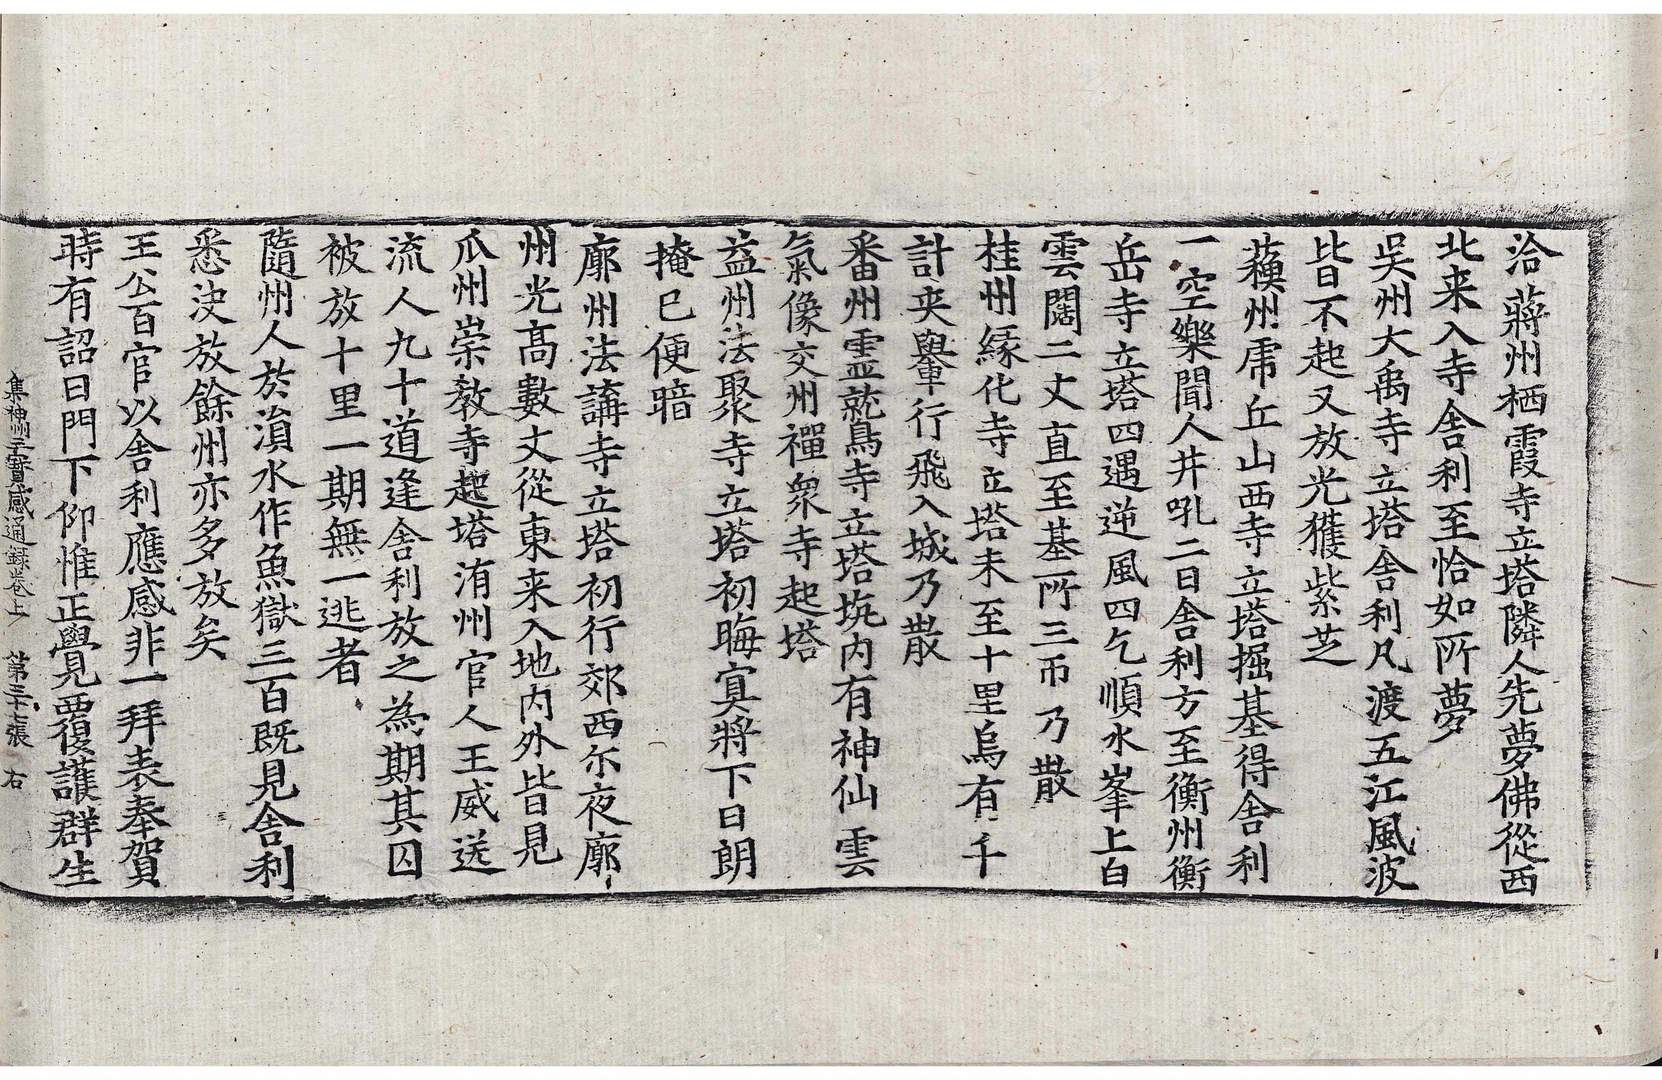 洽蔣州栖霞寺立塔隣人先夢佛從西
北来入寺舎利至恰如所夢
吴州大禹寺立塔舎利凡渡五江風波
皆不起又放光獲紫芝
蘓州虎丘山西寺立塔掘基得舎利
一空樂聞人井吼二日舎利方至衡州衡
岳寺立塔四遇逆風四乞順水峯上白
雲闊二丈直至基所三帀乃散
桂州縁化寺立塔未至十里烏有千
計夹轝行飛入城乃散
番州靈鷲寺立塔坑内有神仙雲
氣像交州禪衆寺起塔
益州法聚寺立塔初晦寘將下日朗
掩已便暗
廓州法講寺立塔初行郊西尓夜廓
州光高數丈從東来入地内外皆見
瓜州崇教寺起塔洧州官人王威送
流人九十道逢舎利放之為期其囚
被放十里一期無一逃者
隨州人於湞水作魚獄三百既見舎利
悉決放餘州亦多放矣
王公百官以舎利應感非一拜表奉賀
時有詔曰門下仰惟正覺覆護群生
集神州三寳感通録卷上 第三十張 右